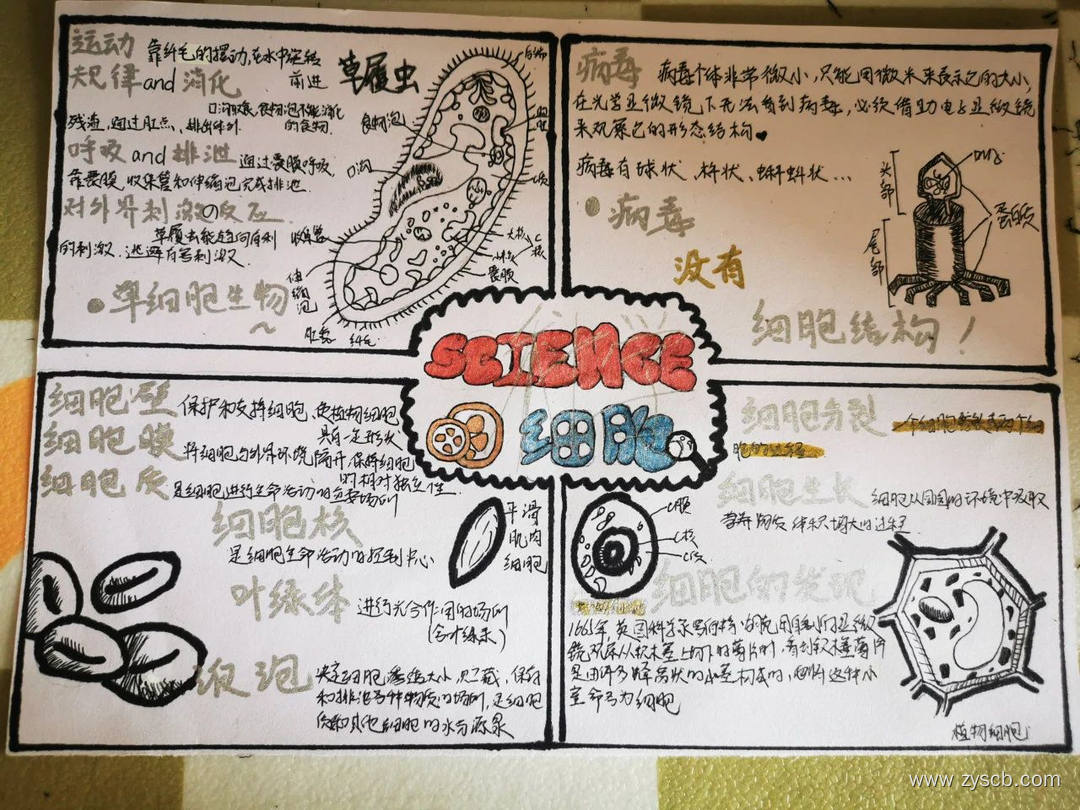 运动 靠纤毛的摆动,在水中旋转
规律and消化 前进
口沟取食,食物泡不能消化
残渣,通过肛点,排出体外 的食物.
呼吸and排泄 通过表膜呼吸
靠表膜,收集管和伸缩泡完成排泄.
对外界刺激の反应
草履虫能趋向有利
的刺激.逃避有害刺激.
单细胞生物~
草履虫
食物泡
口沟
收集管
伸缩泡
大核
小核
表膜
纤毛
病毒 病毒个体非常微小,只能用微米来表示它的大小,
在光学显微镜下无法看到病毒,必须借助电子显微镜
来观察它的形态结构
病毒有球状、杆状、蝌蚪状...
病毒
没有
细胞结构!
头部
尾部
DNA
蛋白质
SCIENCE
细胞
细胞壁 保护和支持细胞、使植物细胞
具有一定形状
细胞膜 将细胞与外界环境隔开,保障细胞
的相对独立性.
细胞质 是细胞进行生命活动的主要场所
细胞核
是细胞生命活动的控制中心
叶绿体 进行光合作用的场所
(含叶绿素)
液泡
平滑
肌肉
细胞
细胞分裂 一个细胞
细胞生长 细胞从周围的环境中吸收
营养物质 体积增大的过程
C膜
C核
C质
细胞的发现
1665年,英国科学家罗伯特·胡克用自制的显微
镜观察从软木塞上切下的薄片时,看到软木薄片
是由许多蜂窝状的小室构成的,他将这种小
室命名为细胞
植物细胞
www.zyscb.com